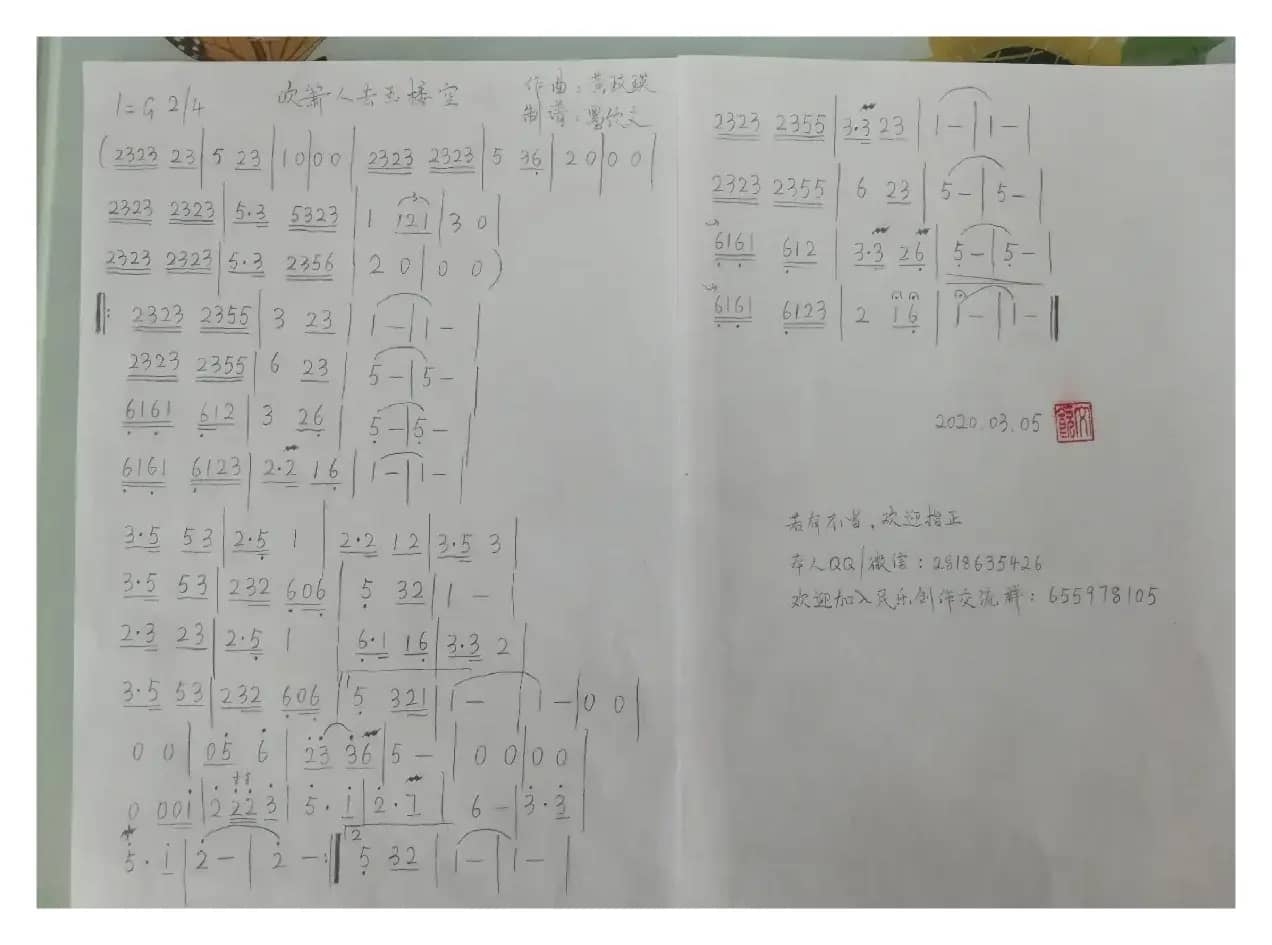 1=G 2/4
吹箫人去玉楼空
作曲:黄玫瑛
制谱:
(2323 23|5 23|10|00|2323 2323|5 36|20|00|
2323 2323|5·3 5323|1 121|30|
2323 2323|5·3 2356|20|00)
‖: 2323 2355|3 23|1–|1–|
2323 2355|6 23|5–|5–|
6161 612|3 26|5–|5–|
6161 6123|2·2 16|1–|1–|
3·5 53|2·5 1|2·2 12|3·5 3|
3·5 53|232 606|5 32|1–|
2·3 23|2·5 1|6·1 16|3·3 2|
3·5 53|232 606|1 5 321|1–|1–|00|
00|05 6|23 36|5–|00|00|
0 001|2 223|5·1|2·1|6–|3·3|
5·1|2–|2–:‖2 5 32|1–|1–|
2323 2355|3·3 23|1–|1–|
2323 2355|6 23|5–|5–|
6161 612|3·3 26|5–|5–|
6161 6123|2 16|1–|1–‖
2020.03.05
若有不当,欢迎指正
本人QQ/微信:2818635426
欢迎加入民乐创作交流群:655978105